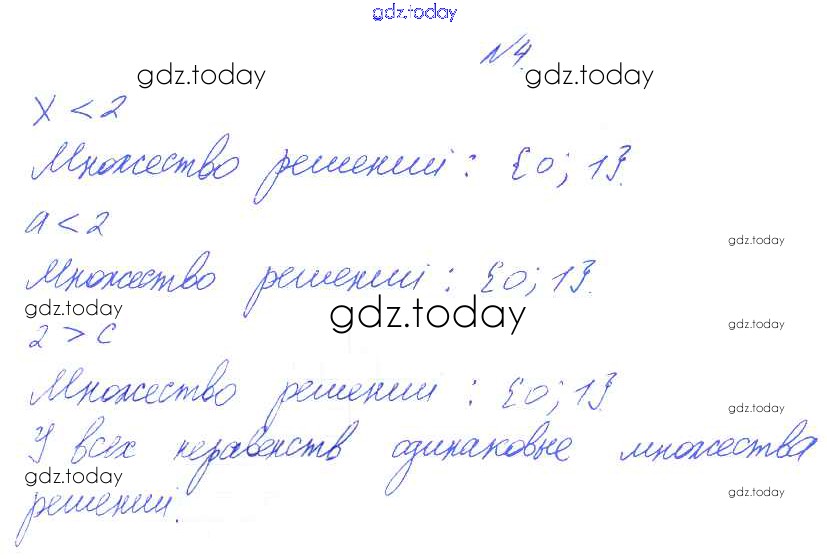 gdz.today
N4.
gdz.today gdz.today
x < 2
Множество решений: {0; 1}.
a < 2
gdz.today
Множество решений: {0; 1}.
gdz.today gdz.today
2 > c gdz.today
Множество решений: {0; 1}.
gdz.today
У всех неравенств одинаковые множества
gdz.today gdz.today
решений.